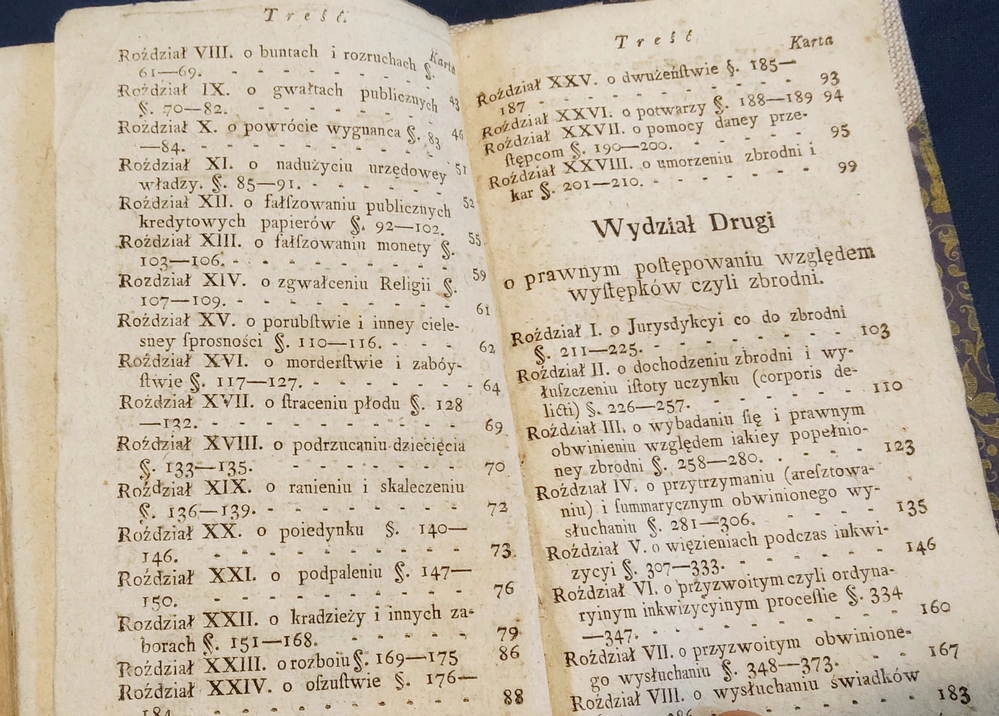 Treść.
Karta
Roździał VIII. o buntach i rozruchach §.
61—69. - - - - - - - - 43
Roździał IX. o gwałtach publicznych
§. 70—82. - - - - - - - 46
Roździał X. o powrócie wygnanca §. 83
—84. - - - - - - - - 51
Roździał XI. o nadużyciu urzędowey
władzy. §. 85—91. - - - - - - 52
Roździał XII. o fałſzowaniu publicznych
kredytowych papierów §. 92—102. 55
Roździał XIII. o fałſzowaniu monety §.
103—106. - - - - - - - - 59
Roździał XIV. o zgwałceniu Religii §.
107—109. - - - - - - - - 61
Roździał XV. o porubſtwie i inney ciele-
sney ſprosności §. 110—116. - - - - 62
Roździał XVI. o morderſtwie i zabóy-
ſtwie §. 117—127. - - - - - - - 64
Roździał XVII. o ſtraceniu płodu §. 128
—132. - - - - - - - - 69
Roździał XVIII. o podrzucaniu dziecięcia
§. 133—135. - - - - - - 70
Roździał XIX. o ranieniu i skaleczeniu
§. 136—139. - - - - - - - 72
Roździał XX. o poiedynku §. 140—
146. - - - - - - - - 73.
Roździał XXI. o podpaleniu §. 147—
150. - - - - - - - - 76
Rozdział XXII. o kradzieży i innych za-
borach §. 151—168. - - - - - 79
Roździał XXIII. o rozboiu §. 169—175 86
Roździał XXIV. o oszuſtwie §. 176—
184. - - - - - - - - 88
Treść
Karta
Roździał XXV. o dwużeńſtwie §. 185—
187 - - - - - - - - 93
Roździał XXVI. o potwarzy §. 188—189 94
Roździał XXVII. o pomocy daney prze-
ſtępcom §. 190—200. - - - - - 95
Roździał XXVIII. o umorzeniu zbrodni i
kar §. 201—210. - - - - - - 99
Wydział Drugi
o prawnym poſtępowaniu względem
wyſtępków czyli zbrodni.
Roździał I. o Jurysdykcyi co do zbrodni
§. 211—225. - - - - - - - 103
Roździał II. o dochodzeniu zbrodni i wy-
łuſzczeniu iſtoty uczynku (corporis de-
licti) §. 226—257. - - - - - - 110
Roździał III. o wybadaniu ſię i prawnym
obwinieniu względem iakiey popełnio-
ney zbrodni §. 258—280. - - - - 123
Roździał IV. o przytrzymaniu (areſztowa-
niu) i ſummarycznym obwinionego wy-
słuchaniu §. 281—306. - - - - - 135
Roździał V. o więzieniach podczas inkwi-
zycyi §. 307—333. - - - - - - 146
Roździał VI. o przyzwoitym czyli ordyna-
ryinym inkwizycyinym proceſſie §. 334
—347. - - - - - - - - 160
Roździał VII. o przyzwoitym obwinione-
go wysłuchaniu §. 348—373. - - - 167
Roździał VIII. o wysłuchaniu świadków
183